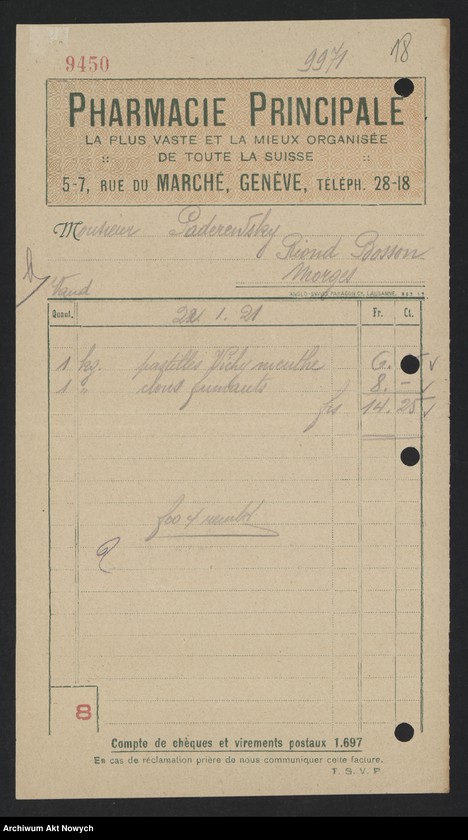 9450
9971
18
PHARMACIE PRINCIPALE
LA PLUS VASTE ET LA MIEUX ORGANISÉE
:: DE TOUTE LA SUISSE ::
5-7, RUE DU MARCHÉ, GENÈVE, TÉLÉPH. 28-18
Monsieur Paderewsky
Riond Bosson
Morges
Vaud
Quant. 22. 1. 21 Fr. Ct.
1 kg. pastilles Vichy menthe 6.
1 " clous fumants 8. –
frs 14. 25
8
Compte de chèques et virements postaux 1.697
En cas de réclamation prière de nous communiquer cette facture.
T. S. V. P.
Archiwum Akt Nowych